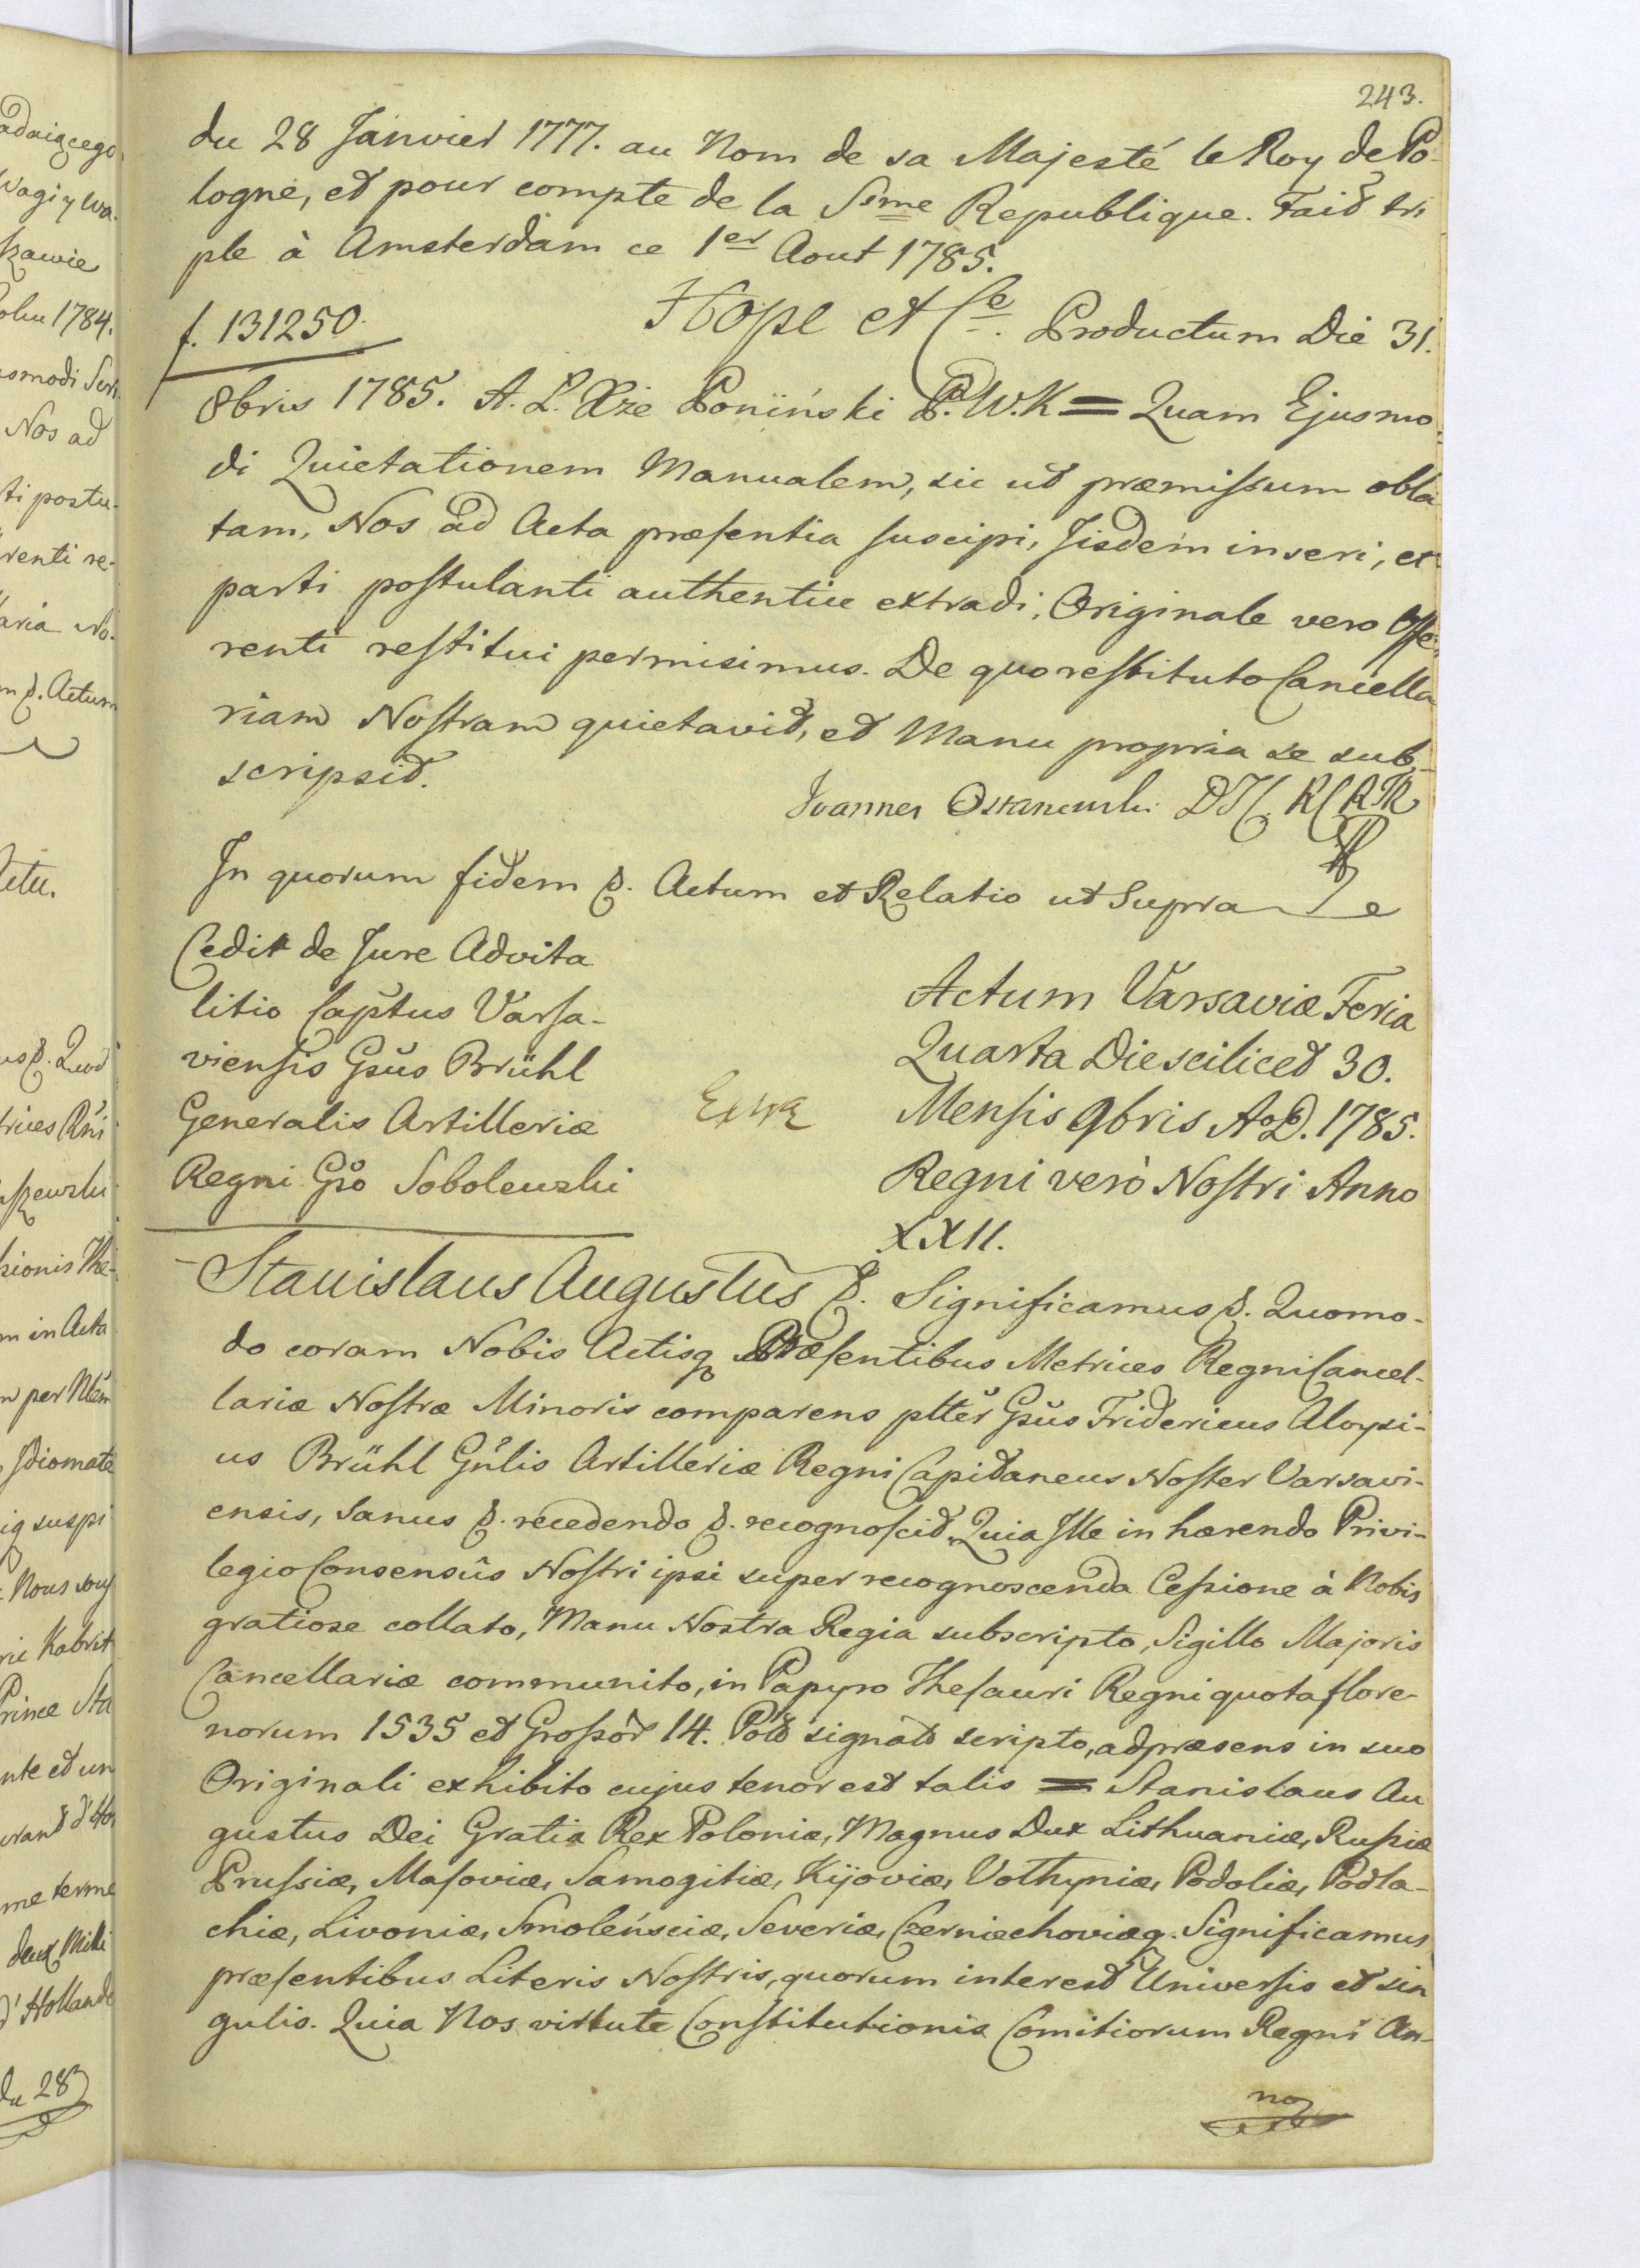 243.
du 28 Janvier 1777. au Nom de sa Majesté le Roy de Po-
logne, et pour compte de la Ssme Republique. Fait tri
ple à Amsterdam ce 1er Aout 1785.
f. 131250. Hope et Ce. Productum Die 31.
8bris 1785. A. L. Xże Poniński P.W.K = Quam Ejusmo-
di Quietationem Manualem, sic ut præmissum obla
tam, Nos ad Acta præsentia suscipi, Iisdem inseri, et
parti postulanti authentice extradi, Originale vero Offe-
renti restitui permisimus. De quo restituto Cancella
riam Nostram quietavit, et Manu propria se sub-
scripsit.
Joannes
In quorum fidem &. Actum et Relatio ut Supra
Cedit de Jure Advita
litio Captus Varsa-
viensis Gsus Brühl
Generalis Artilleriæ
Regni Gso Sobolewski
Actum Varsaviæ Feria
Quarta Die scilicet 30.
Mensis 9bris AoD. 1785.
Regni verò Nostri Anno
XXII.
Stanislaus Augustus &. Significamus &. Quomo-
do coram Nobis Actisq Præsentibus Metrices Regni Cancel-
lariæ Nostræ Minoris comparens pltter Gsus Fridericus Aloysi-
us Brühl Gnlis Artilleriæ Regni Capitaneus Noster Varsavi-
ensis, sanus &. recedendo &. recognoscit Quia Ille in hærendo Privi-
legio Consensûs Nostri ipsi super recognoscenda Cessione à Nobis
gratiose collato, Manu Nostra Regia subscripto, Sigillo Majoris
Cancellariæ communito, in Papyro Thesauri Regni quota flore-
norum 1535 et Grossor 14. Pol signato scripto, adpræsens in suo
Originali exhibito cujus tenor est talis = Stanislaus Au
gustus Dei Gratia Rex Poloniæ, Magnus Dux Lithuaniæ, Russiæ
Prussiæ, Masoviæ, Samogitiæ, Kijoviæ, Volhyniæ, Podoliæ, Podla-
chiæ, Livoniæ, Smolénsciæ, Severiæ, Czerniechoviæq. Significamus
præsentibus Literis Nostris, quorum interest Universis et sin
gulis. Quia Nos virtute Constitutionis Comitiorum Regni An-
no